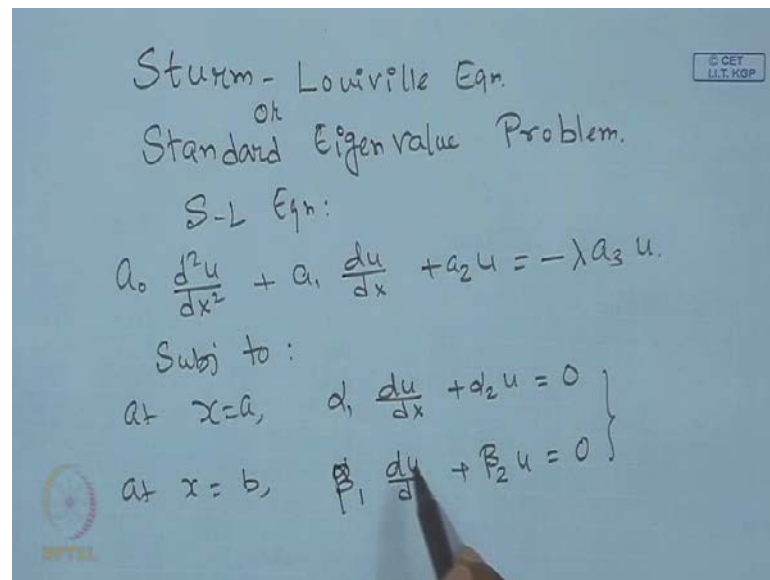 Sturm - Louiville Eqn.
© CET
I.I.T. KGP
or
Standard Eigen value Problem.
S-L Eqn:
a₀ d²u/dx² + a₁ du/dx + a₂ u = -λ a₃ u.
Subj to:
at x=a, α₁ du/dx + α₂ u = 0
at x = b, β₁ du/d + β₂ u = 0
NPTEL